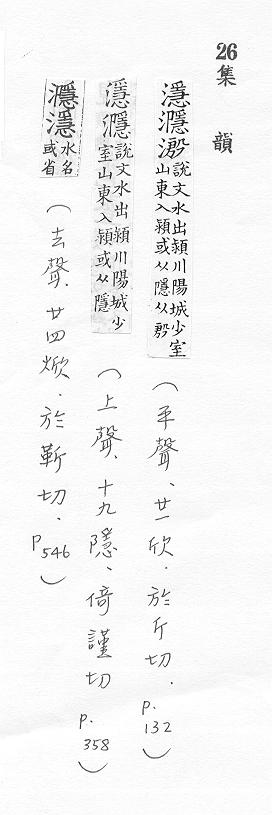 26 集韻
濦㶏溵說文水出潁川陽城少室山東入潁或从隱从殷
(平聲、廿一欣．於斤切．p.132)
濦㶏說文水出潁川陽城少室山東入潁或从隱
(上聲、十九隱、倚謹切 p.358)
㶏濦水名或省
(去聲、廿四焮．於靳切．p546)